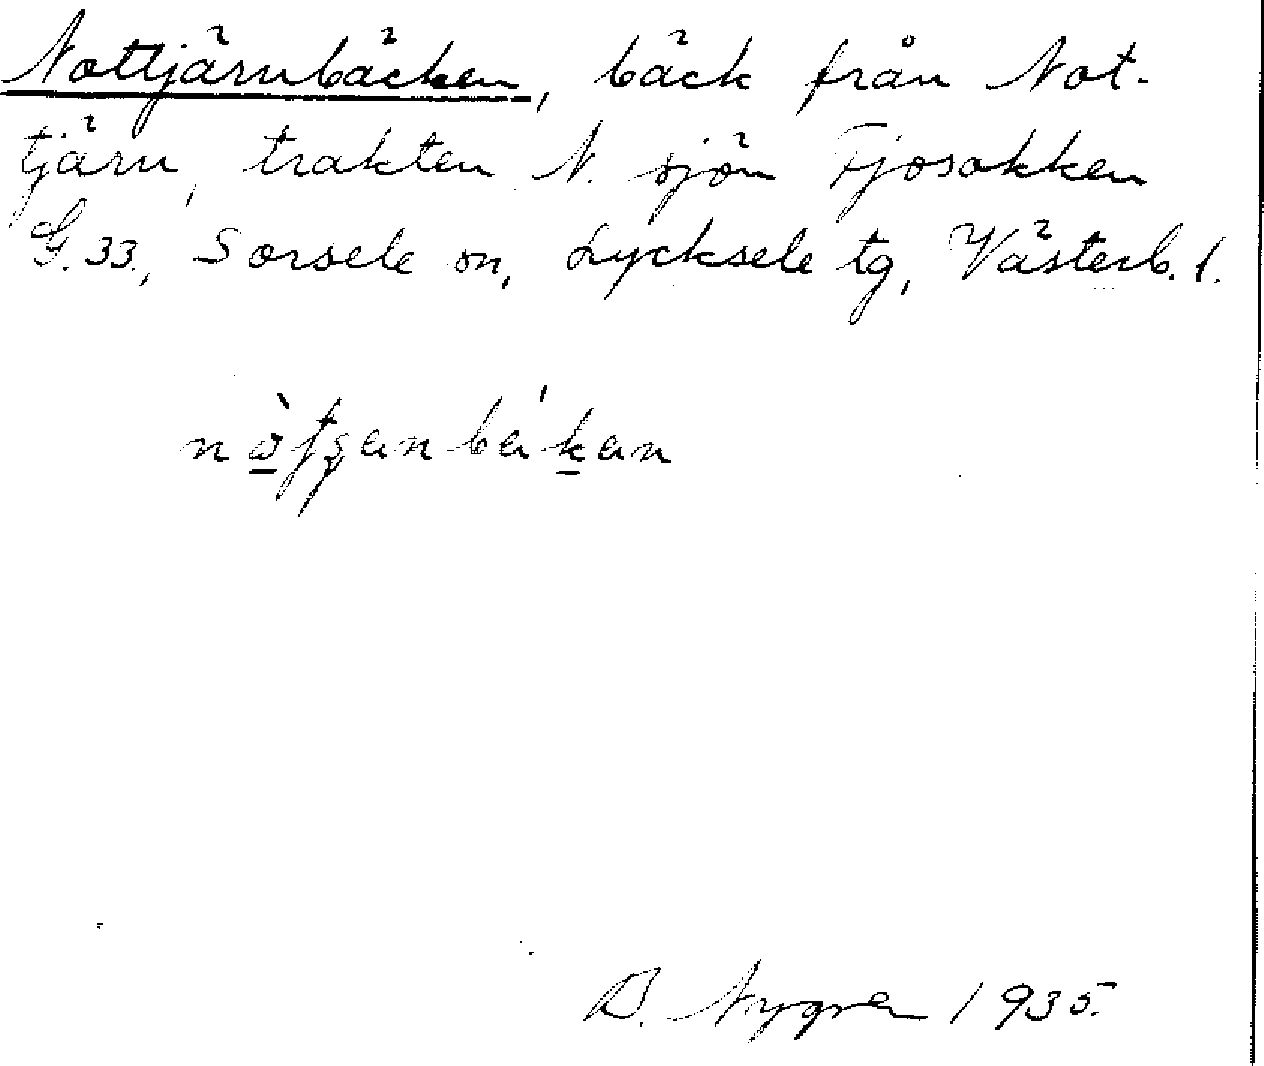 Nottjärnbäcken, bäck från Not-
tjärn, trakten N. sjön Fjosokken
G. 33., Sorsele sn, Lycksele tg, Västerb. l.
D. Nygren 1935.